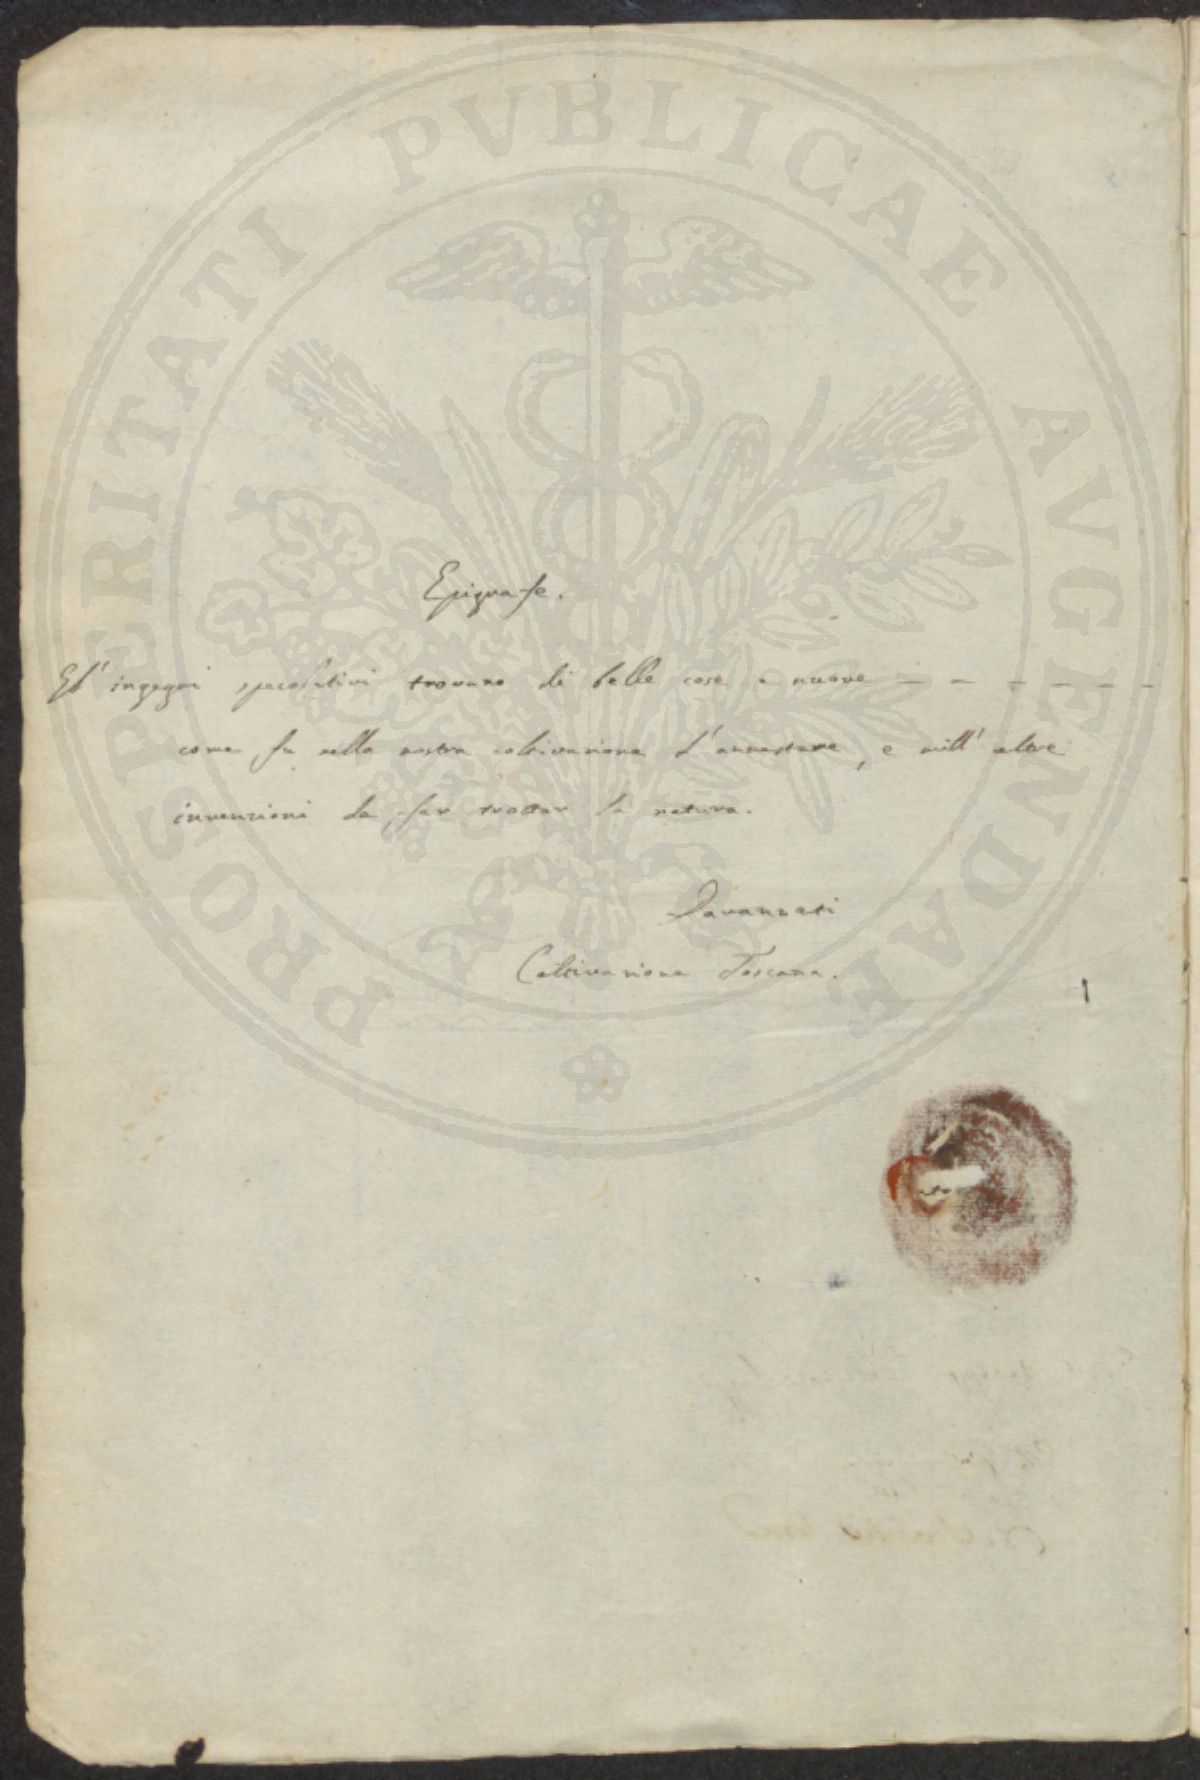 PROSPERITATI PVBLICAE AVGENDAE
Epigrafe.
Gl' ingegni specolativi trovano di belle cose e nuove – – – – – –
come fu nella nostra coltivazione l'annestare, e mill' altre
invenzioni da far trottar la natura.
Davanzati
Coltivazione Toscana.